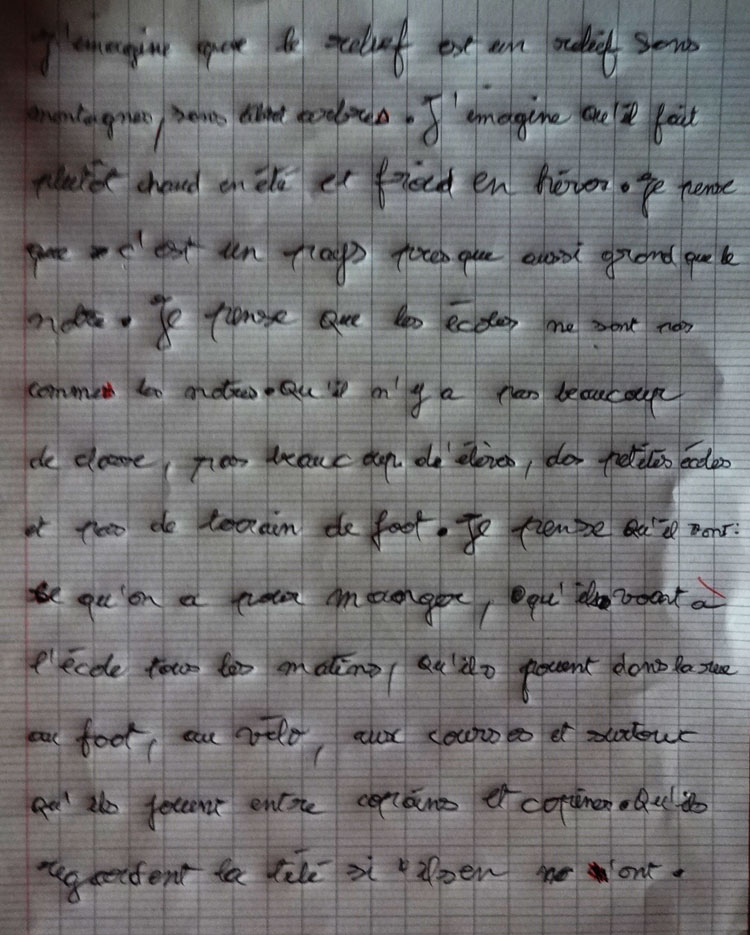 J'imagine que le relief est un relief sans
montagnes, sans arbres. J'imagine qu'il fait
plutôt chaud en été et froid en hiver. Je pense
que c'est un pays presque aussi grand que le
notre. Je pense que les écoles ne sont pas
comme les notres. Qu'il n'y a pas beaucoup
de classe, pas beaucoup d'élèves, des petites écoles
et pas de terrain de foot. Je pense qu'il ont
se qu'on a pour manger, qu'ils vont à
l'école tous les matins, qu'ils jouent dans la rue
au foot, au vélo, aux courses et surtout
qu'ils jouent entre copains et copines. Qu'ils
regardent la télé si ils en ont.